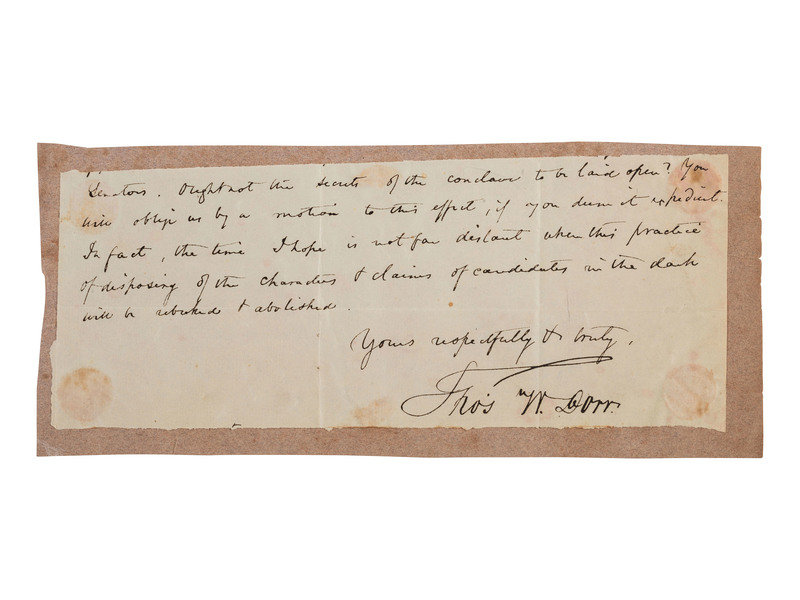 Senators. Ought not the secrets of the conclave to be laid open? You
will oblige us by a motion to this effect, if you deem it expedient.
In fact, the time I hope is not far distant when this practice
of disposing of the characters & claims of candidates in the dark
will be rebuked & abolished.
Yours respectfully & truly,
Thos W. Dorr.